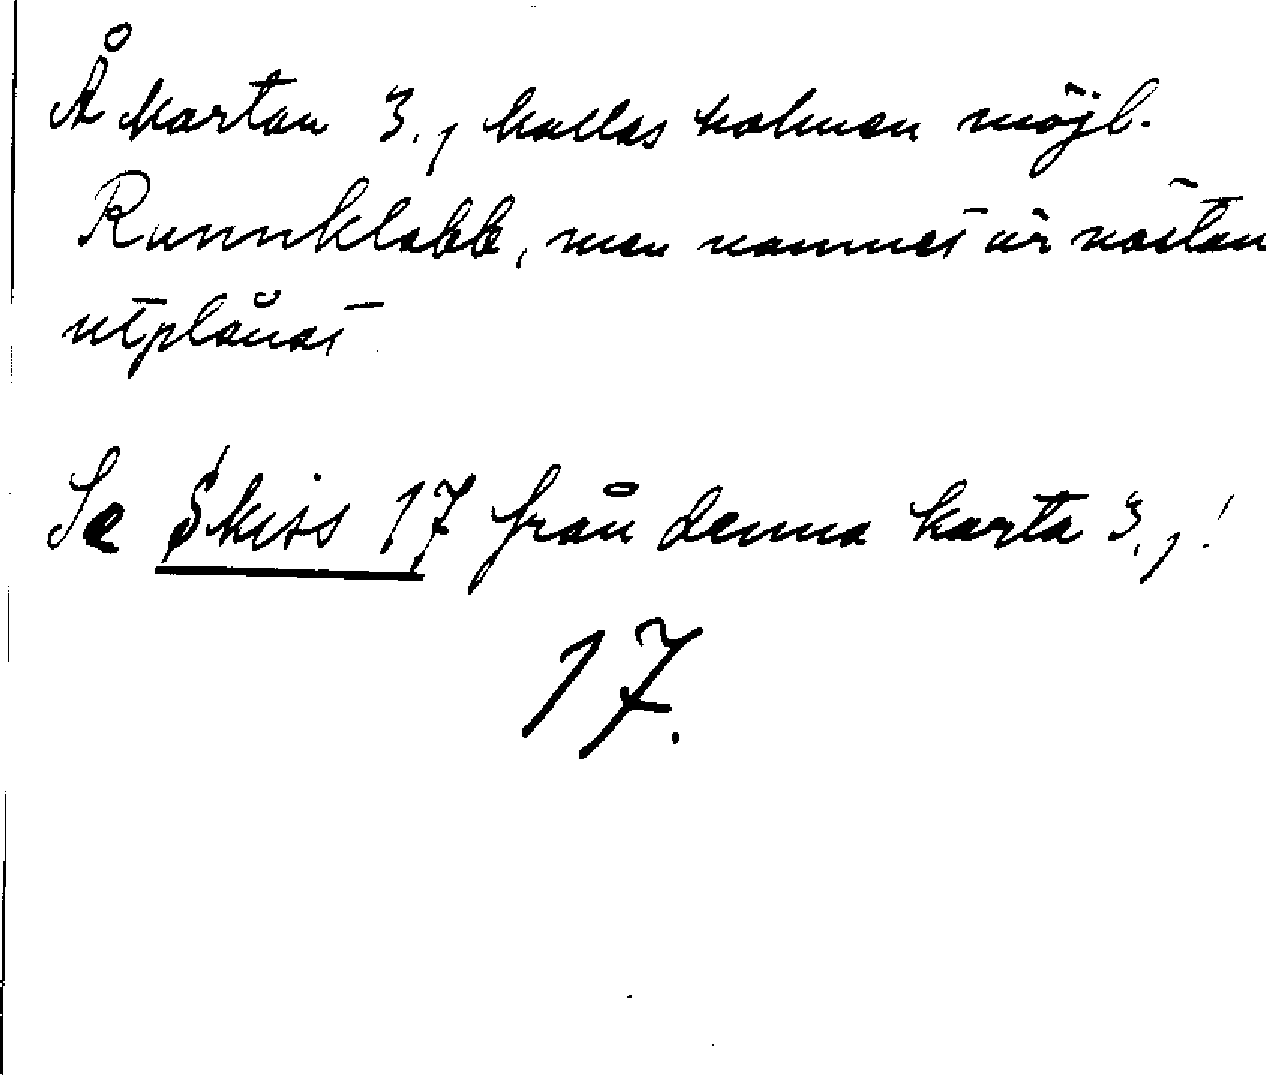 Å kartan 3., kallas holmen möjl.
Runnklabb, men namnet är nästan
utplånat
Se Skiss 17 från denna karta 3.,!
17.